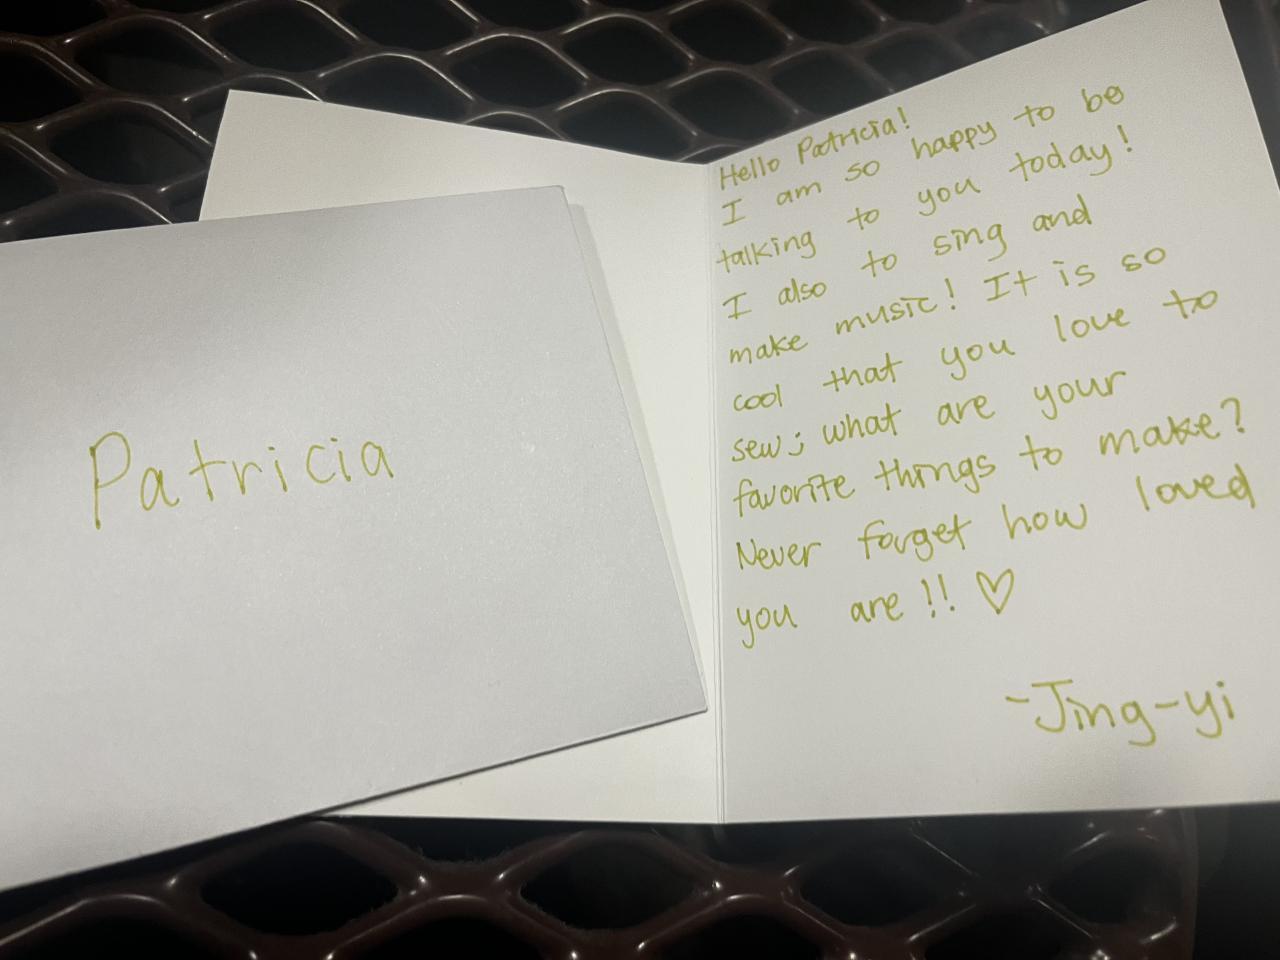 Patricia
Hello Patricia!
I am so happy to be
talking to you today!
I also to sing and
make music! It is so
cool that you love to
sew; what are your
favorite things to make?
Never forget how loved
you are!! ♡
-Jing-yi